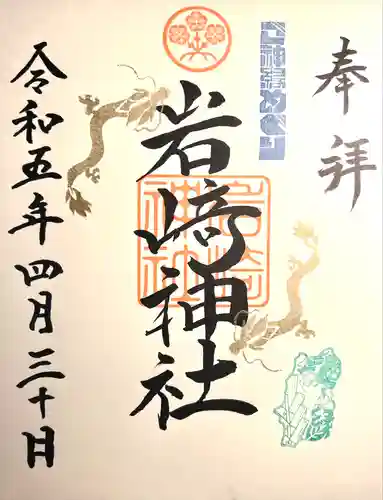 奉拝
岩﨑神社
岩﨑神社
令和五年四月三十日